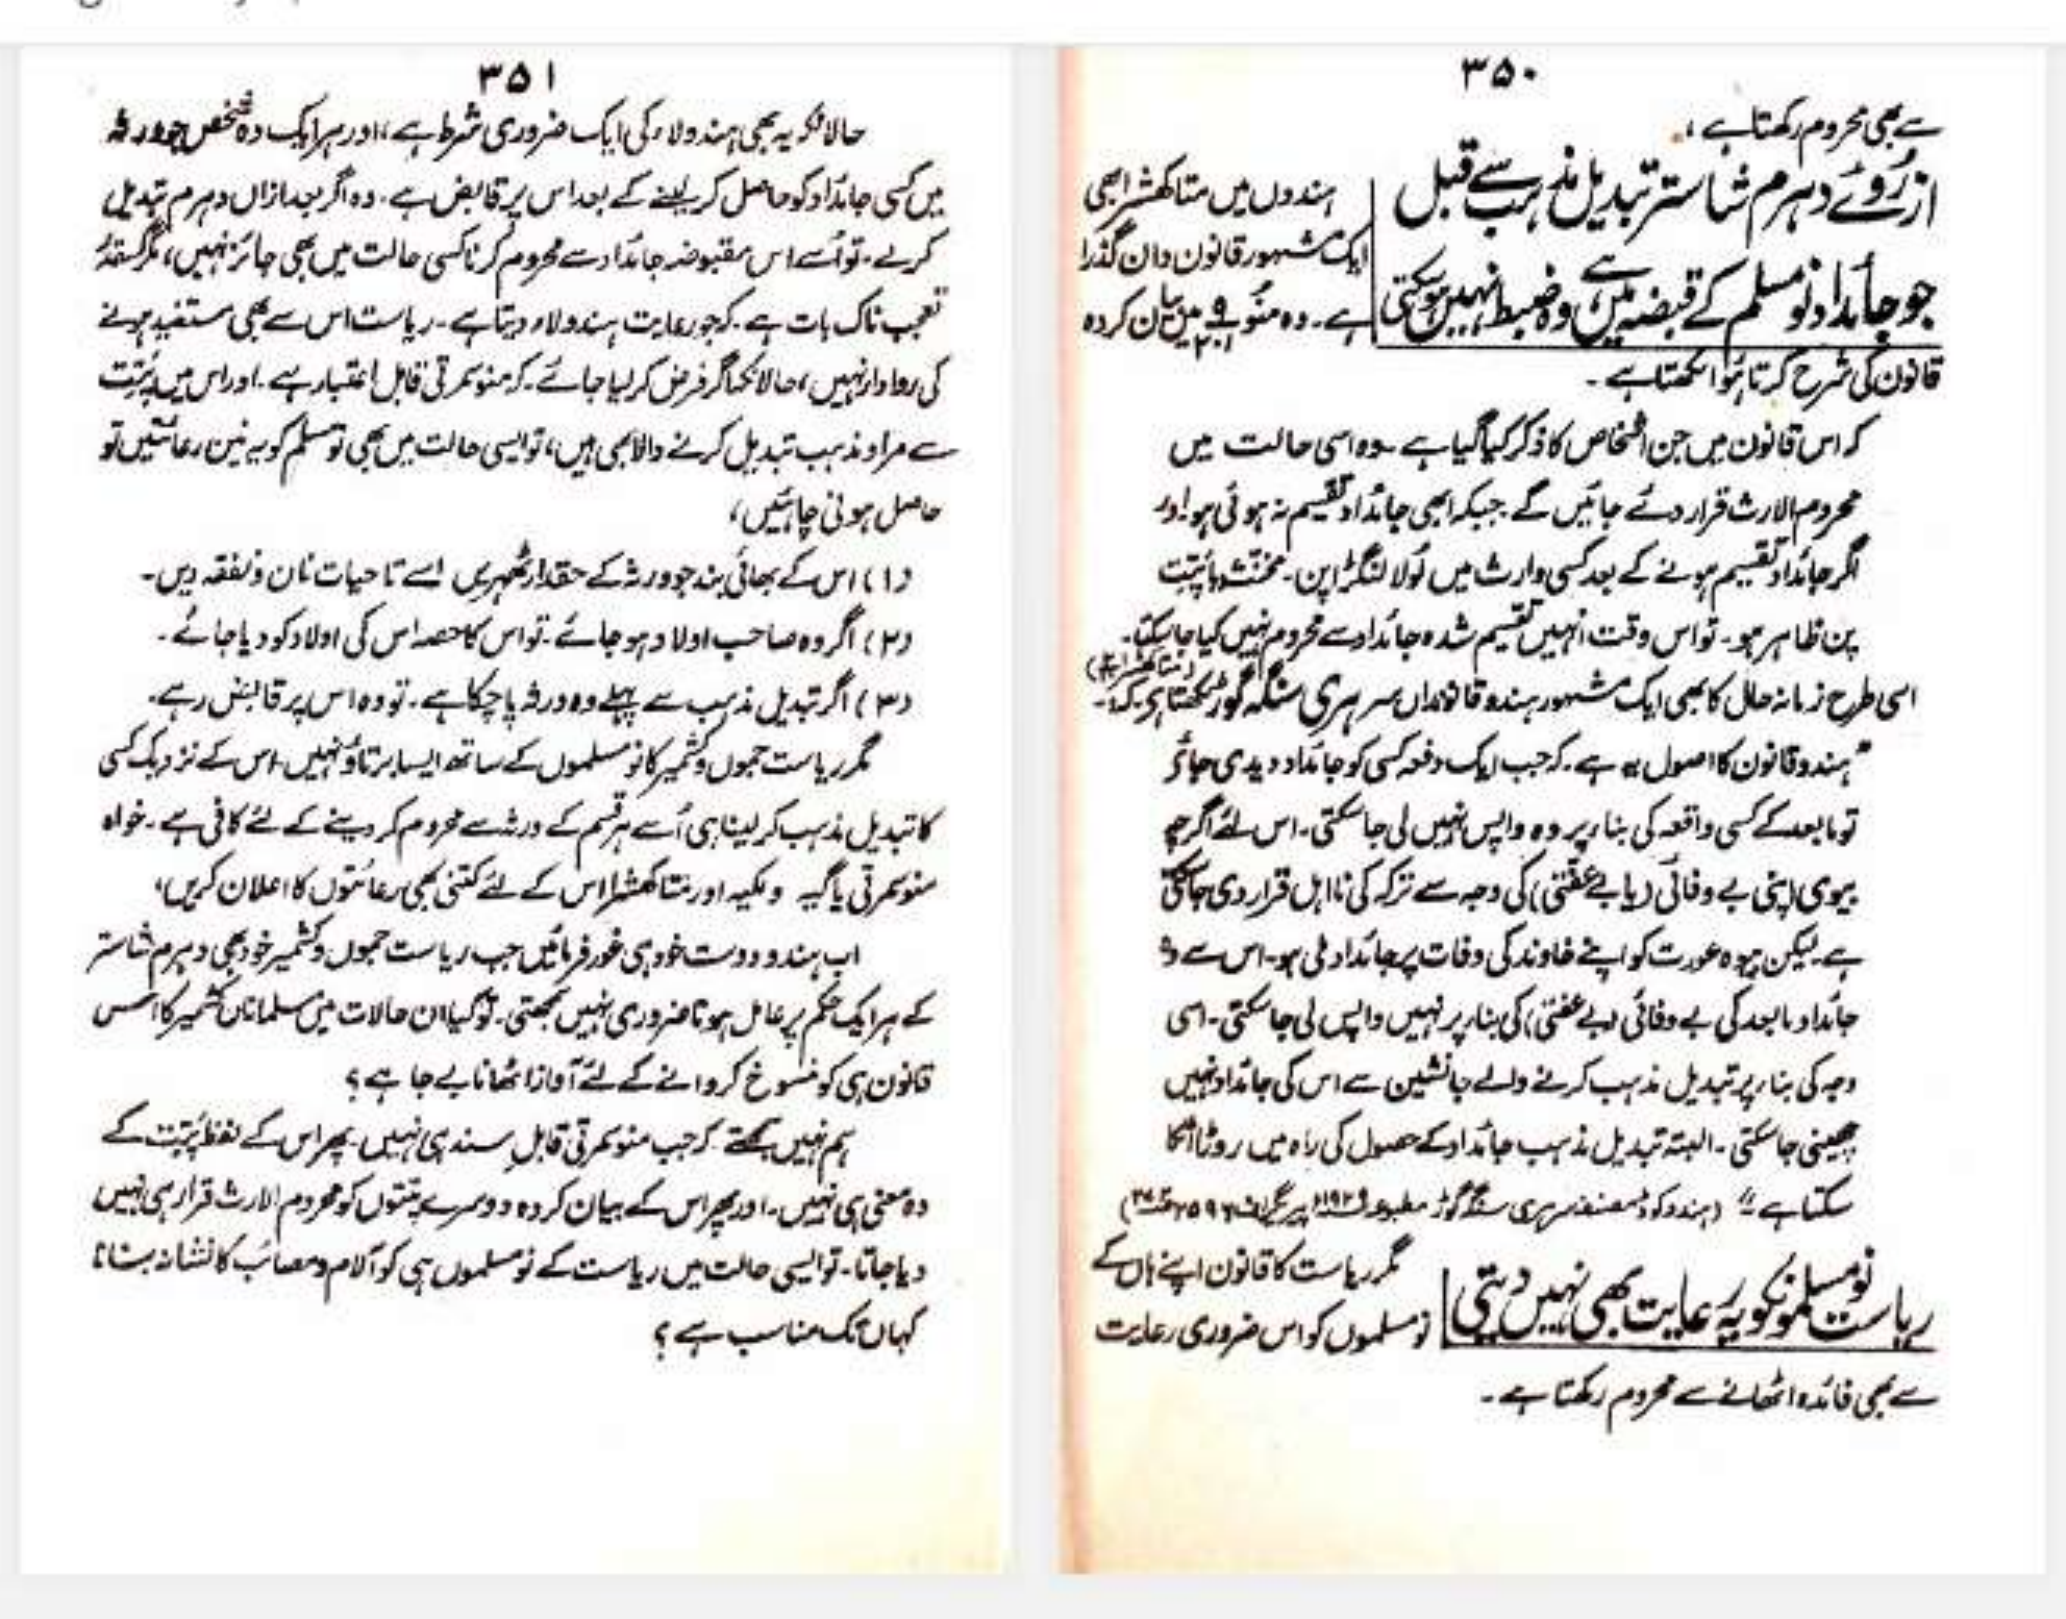 ۳۵۰
سے بھی محروم رکھتا ہے ،
از رُوئے دہرم شاستر تبدیل مذہب سے قبل
جو جائداد نو مسلم کے قبضہ میں ہے وہ ضبط نہیں ہو سکتی
ہندوں میں متاکھشرا بھی
ایک مشہور قانون دان گذرا
ہے۔ وہ منو میں بیان کردہ
قانون کی شرح کرتا ہُوا لکھتا ہے۔
کہ اس قانون میں جن اشخاص کا ذکر کیا گیا ہے۔ وہ اسی حالت میں
محروم الارث قرار دئے جائیں گے جبکہ ابھی جائداد تقسیم نہ ہوئی ہو اور
اگر جائداد تقسیم ہونے کے بعد کسی وارث میں لُولا لنگڑا پن۔ مخنث یا پَتِت
پن ظاہر ہو۔ تو اس وقت انہیں تقسیم شدہ جائداد سے محروم نہیں کیا جا سکتا۔
اسی طرح زمانہ حال کا بھی ایک مشہور ہندو قانوندان سر ہری سنگھ گوڑ لکھتا ہے کہ۔
"ہندو قانون کا اصول یہ ہے۔ کہ جب ایک دفعہ کسی کو جائداد دیدی جائے
تو مابعد کے کسی واقعہ کی بناء پر وہ واپس نہیں لی جا سکتی۔ اس لئے اگرچہ
بیوی اپنی بے وفائی (یا بے عفتی) کی وجہ سے ترکہ کی نا اہل قرار دی جا سکتی
ہے۔ لیکن بیوہ عورت کو اپنے خاوند کی وفات پر جائداد ملی ہو۔ اس سے وہ
جائداد مابعد کی بے وفائی (بے عفتی) کی بناء پر نہیں واپس لی جا سکتی۔ اسی
وجہ کی بناء پر تبدیل مذہب کرنے والے جانشین سے اس کی جائداد نہیں
چھینی جا سکتی۔ البتہ تبدیل مذہب جائداد کے حصول کی راہ میں روڑا اٹکا
سکتا ہے" (ہندو کوڈ مصنفہ سر ہری سنگھ گوڑ مطبوعہ ۱۹۲۹ء پیراگراف
ریاست نو مسلمونکو یہ رعایت بھی نہیں دیتی
مگر ریاست کا قانون اپنے ہاں کے
نو مسلموں کو اس ضروری رعایت
سے بھی فائدہ اٹھانے سے محروم رکھتا ہے۔
۳۵۱
حالانکہ یہ بھی ہندو لاء کی ایک ضروری شرط ہے، اور ہر ایک وہ شخص جو ورثہ
میں کسی جائداد کو حاصل کر لینے کے بعد اس پر قابض ہے۔ وہ اگر بعد ازاں دہرم تبدیل
کرلے۔ تو اُسے اس مقبوضہ جائداد سے محروم کرنا کسی حالت میں بھی جائز نہیں، مگر کسقدر
تعجب ناک بات ہے۔ کہ جو رعایت ہندو لاء دیتا ہے۔ ریاست اس سے بھی مستفید ہونے
کی روادار نہیں، حالانکہ اگر فرض کر لیا جائے۔ کہ منو سمرتی قابل اعتبار ہے۔ اور اس میں پَتِت
سے مراد مذہب تبدیل کرنے والا بھی ہیں، تو ایسی حالت میں بھی نو مسلم کو یہ تین رعائتیں تو
حاصل ہونی چاہئیں،
(۱) اس کے بھائی بند جو ورثہ کے حقدار ٹھہریں اسے تا حیات نان و نفقہ دیں۔
(۲) اگر وہ صاحب اولاد ہو جائے۔ تو اس کا حصہ اس کی اولاد کو دیا جائے۔
(۳) اگر تبدیل مذہب سے پہلے وہ ورثہ پا چکا ہے۔ تو وہ اس پر قابض رہے۔
مگر ریاست جموں و کشمیر کا نو مسلموں کے ساتھ ایسا برتاؤ نہیں۔ اس کے نزدیک کسی
کا تبدیل مذہب کر لینا ہی اُسے ہر قسم کے ورثہ سے محروم کر دینے کے لئے کافی ہے۔ خواہ
منو سمرتی یاگیہ ولکیہ اور متاکھشرا اس کے لئے کتنی بھی رعائتوں کا اعلان کریں،
اب ہندو دوست خود ہی غور فرمائیں جب ریاست جموں و کشمیر خود بھی دہرم شاستر
کے ہر ایک حکم پر عامل ہونا ضروری نہیں سمجھتی۔ تو کیا ان حالات میں مسلمانان کشمیر کا اس
قانون ہی کو منسوخ کروانے کے لئے آواز اٹھانا بے جا ہے؟
ہم نہیں سمجھتے کہ جب منو سمرتی قابلِ سند ہی نہیں۔ پھر اس کے لفظ پَتِت کے
وہ معنی ہی نہیں۔ اور پھر اس کے بیان کردہ دوسرے پتتوں کو محروم الارث قرار ہی نہیں
دیا جاتا۔ تو ایسی حالت میں ریاست کے نو مسلموں ہی کو آلام و مصائب کا نشانہ بنانا
کہاں تک مناسب ہے؟